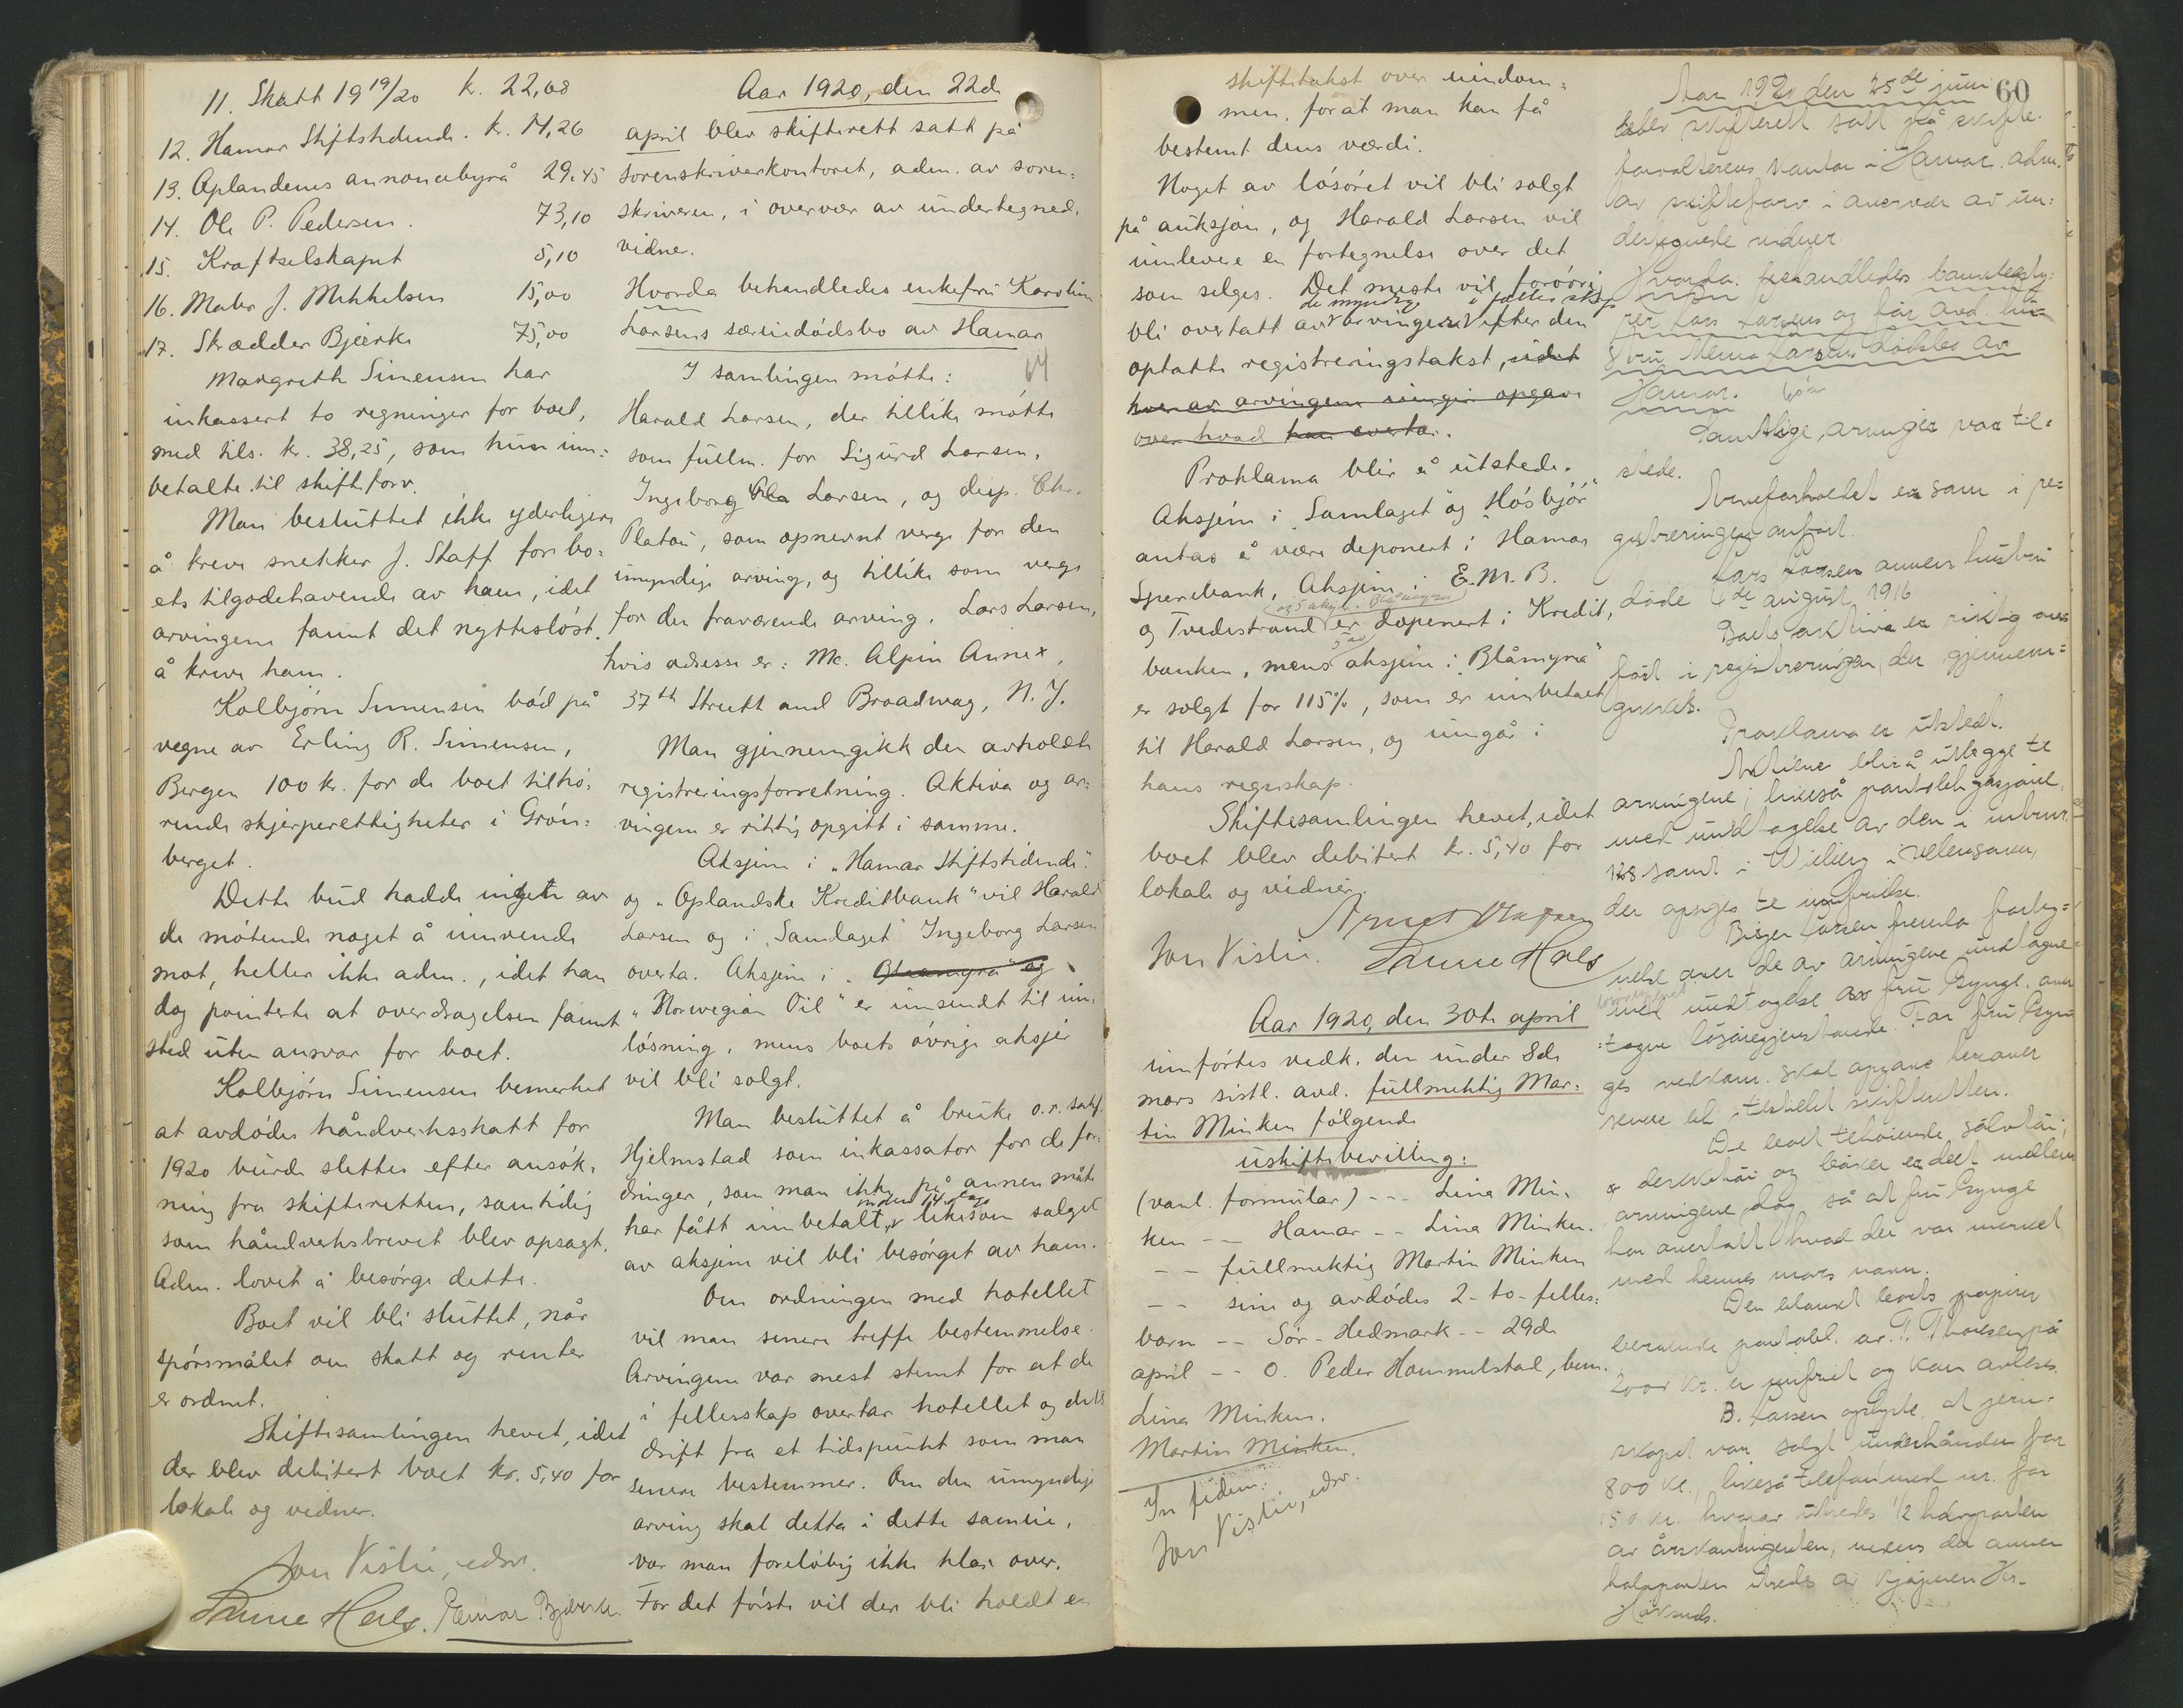 11. Skatt 19 19/20 k. 22,08
12. Hamar Stiftstidende. k. 14,26
13. Oplandenes annoncebyrå 29,45
14. Ole P. Pedersen. 73,10
15. Kraftselskapet 5,10
16. Maler J. Mikkelsen 15,00
17. Skrædder Bjerke 75,00
Margrethe Simensen har
inkassert to regninger for boet,
med tils. kr. 38,25, som hun inn=
betalte til skifteforv.
Man besluttet ikke yderligere
å kreve snekker J. Staff for bo=
ets tilgodehavende av ham, idet
arvingene fannt det nyttesløst
å kreve ham.
Kolbjørn Simensen bød på
vegne av Erling R. Simensen,
Bergen 100 kr. for de boet tilhø=
rende skjerperettigheter i Grøn=
berget.
Dette bud hadde ingen av
de møtende noget å innvende
mot, heller ikke adm., idet han
dog pointerte at overdragelsen fannt
sted uten ansvar for boet.
Kolbjørn Simensen bemerket
at avdødes håndverksskatt for
1920 burde slettes efter ansøk=
ning fra skifteretten, samtidig
som håndverksbrevet blev opsagt.
Adm. lovet å besørge dette.
Boet vil bli sluttet, når
spørsmålet om skatt og renter
er ordnet.
Skiftesamlingen hevet, idet
der blev debitert boet kr. 5,40 for
lokale og vidner.
Jon Vislie, edsv.
Sanne Hals. Einar Bjerke
Aar 1920, den 22de
april blev skifterett satt på
sorenskriverkontoret, adm. av soren=
skriveren, i overvær av undertegnede
vidner.
Hvorda behandledes enkefru Karoline
Larsens særeiedødsbo av Hamar
64
I samlingen møtte:
Harald Larsen, der tillike møtte
som fullm. for Sigurd Larsen,
Ingeborg Larsen, og disp. Chr.
Platou, som opnevnt verge for den
umyndige arving, og tillike som verge
for den fraværende arving, Lars Larsen,
hvis adresse er: Mc. Alpin Annex,
37th Strutt and Broadway, N. Y.
Man gjennemgikk den avholdte
registreringsforretning. Aktiva og ar=
vingene er riktig opgitt i samme.
Aksjene i „Hamar Stiftstidende"
og „Oplandske Kreditbank" vil Harald
Larsen og i „Samlaget" Ingeborg Larsen
overta. Aksjene i „Blåmyra" og
„Norwegian Oil" er innsendt til inn=
løsning, mens boets øvrige aksjer
vil bli solgt.
Man besluttet å bruke o.r. sakf.
Hjelmstad som inkassator for de for=
dringer, som man ikke på annen måte
innen 14 dage
har fått innbetalt, likesom salget
av aksjene vil bli besørget av ham.
Om ordningen med hotellet
vil man senere treffe bestemmelse.
Arvingene var mest stemt for at de
i fellesskap overtar hotellet og dets
drift fra et tidspunkt som man
senere bestemmer. Om den umyndige
arving skal delta i dette sameie,
var man foreløbig ikke klar over.
For det første vil der bli holdt en
skiftetakst over eiendom=
men, forat man kan få
bestemt dens værdi.
Noget av løsøret vil bli solgt
på auksjon, og Harald Larsen vil
innlevere en fortegnelse over det
som selges. Det meste vil forøvrig
de myndige i fellesskap
bli overtatt av arvingene efter den
optatte registreringstakst, idet
hver av arvingene inngir opgave
over hvad han overtar.
Proklama blir å utstede.
Aksjene i „Samlaget" og „Høsbjør"
antas å være deponert i Hamar
Sparebank, Aksjene i E. M. B.
og 5 aksjer i Blåmyra
og Tvedestrand er deponert i Kredit=
banken, mens 5 av aksjene i „Blåmyra"
er solgt for 115%, som er innbetalt
til Harald Larsen, og inngår i
hans regnskap.
Skiftesamlingen hevet, idet
boet blev debitert kr. 5,40 for
lokale og vidner.
Jon Vislie. Sanne Hals
Aar 1920, den 30te april
innførtes vedk. den under 8de
mars sistl. avd. fullmektig Mar=
tin Minken følgende
uskiftebevilling:
(vanl. formular) --- Lina Min=
ken -- Hamar -- Lina Minken
-- fullmektig Martin Minken
-- sine og avdødes 2 - to - felles=
barn -- Sør-Hedmark -- 29de
april -- O. Peder Hammelstad, bem.
Lina Minken.
Martin Minken.
In fidem:
Jon Vislie, edsv.
60
Aar 1920 den 25de juni
blev skifterett satt på skifte=
forvalterens kontor i Hamar, adm.
av skifteforv. i overvær av un=
dertegnede vidner.
Hvorda behandledes
Lars Larsens og før avd. hu=
stru Larsens dødsbo av
Hamar.
Samtlige arvinger var til=
stede.
Arveforholdet er som i re=
gistreringen anført.
Lars Larsens annen hustru
døde 6de august 1916
Boets aktiva er riktig an=
ført i registreringen, der gjennem=
gikkes.
Proklama er utstedt.
Aktiene blir å utlegge til
arvingene, likeså pantobligasjonene,
med undtagelse av den i
128 samt i
der opsiges til innfrielse.
Birger Larsen fremla forteg=
nelse over de av arvingene undtagne
med undtagelse av fru Rynge over=
tagne løsøregjenstande. For fru Ryn=
ges vedkom. skal opgave herover
senere bli tilstillet skifteretten.
De boet tilhørende sølvtøi,
dekketøi og bøker er delt mellem
arvingene, dog så at fru Rynge
har overtatt hvad der var merket
med hennes mors navn.
Den blandt boets papirer
beroende pantobl. av T. Thoresen på
2000 kr. er innfriet og kan avleses.
B. Larsen oplyste, at jern=
skapet var solgt underhånden for
800 kr., likeså telefon med nr. for
150 kr. hvorav utredes 1/2 halvparten
av årskontingenten, mens den annen
halvparten utredes av kjøperen Hr.